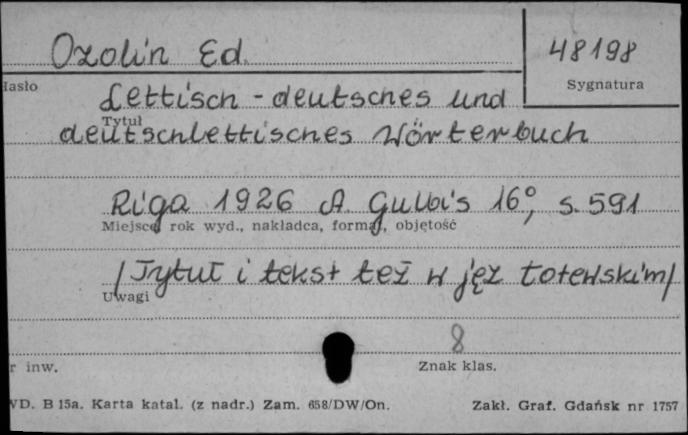 Ozolin Ed.
48198
Hasło
Sygnatura
Lettisch - deutsches und
Tytuł
deutschlettisches Wörterbuch
Riga 1926 A. Gulbis 16°, s. 591
Miejsce, rok wyd., nakładca, format, objętość
/Tytuł i tekst też w jęz łotewskim/
Uwagi
8
r inw.
Znak klas.
WD. B 15a. Karta katal. (z nadr.) Zam. 658/DW/On.
Zakł. Graf. Gdańsk nr 1757